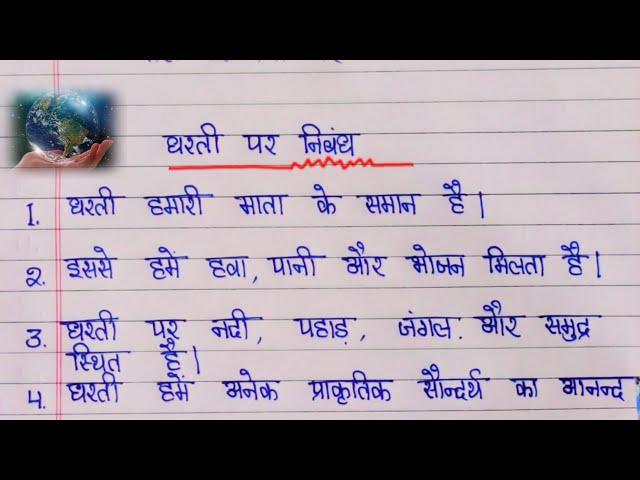 धरती पर निबंध
1. धरती हमारी माता के समान है।
2. इससे हमें हवा, पानी और भोजन मिलता है।
3. धरती पर नदी, पहाड़, जंगल. और समुद्र
स्थित है।
4. धरती हमें अनेक प्राकृतिक सौन्दर्य का आनन्द